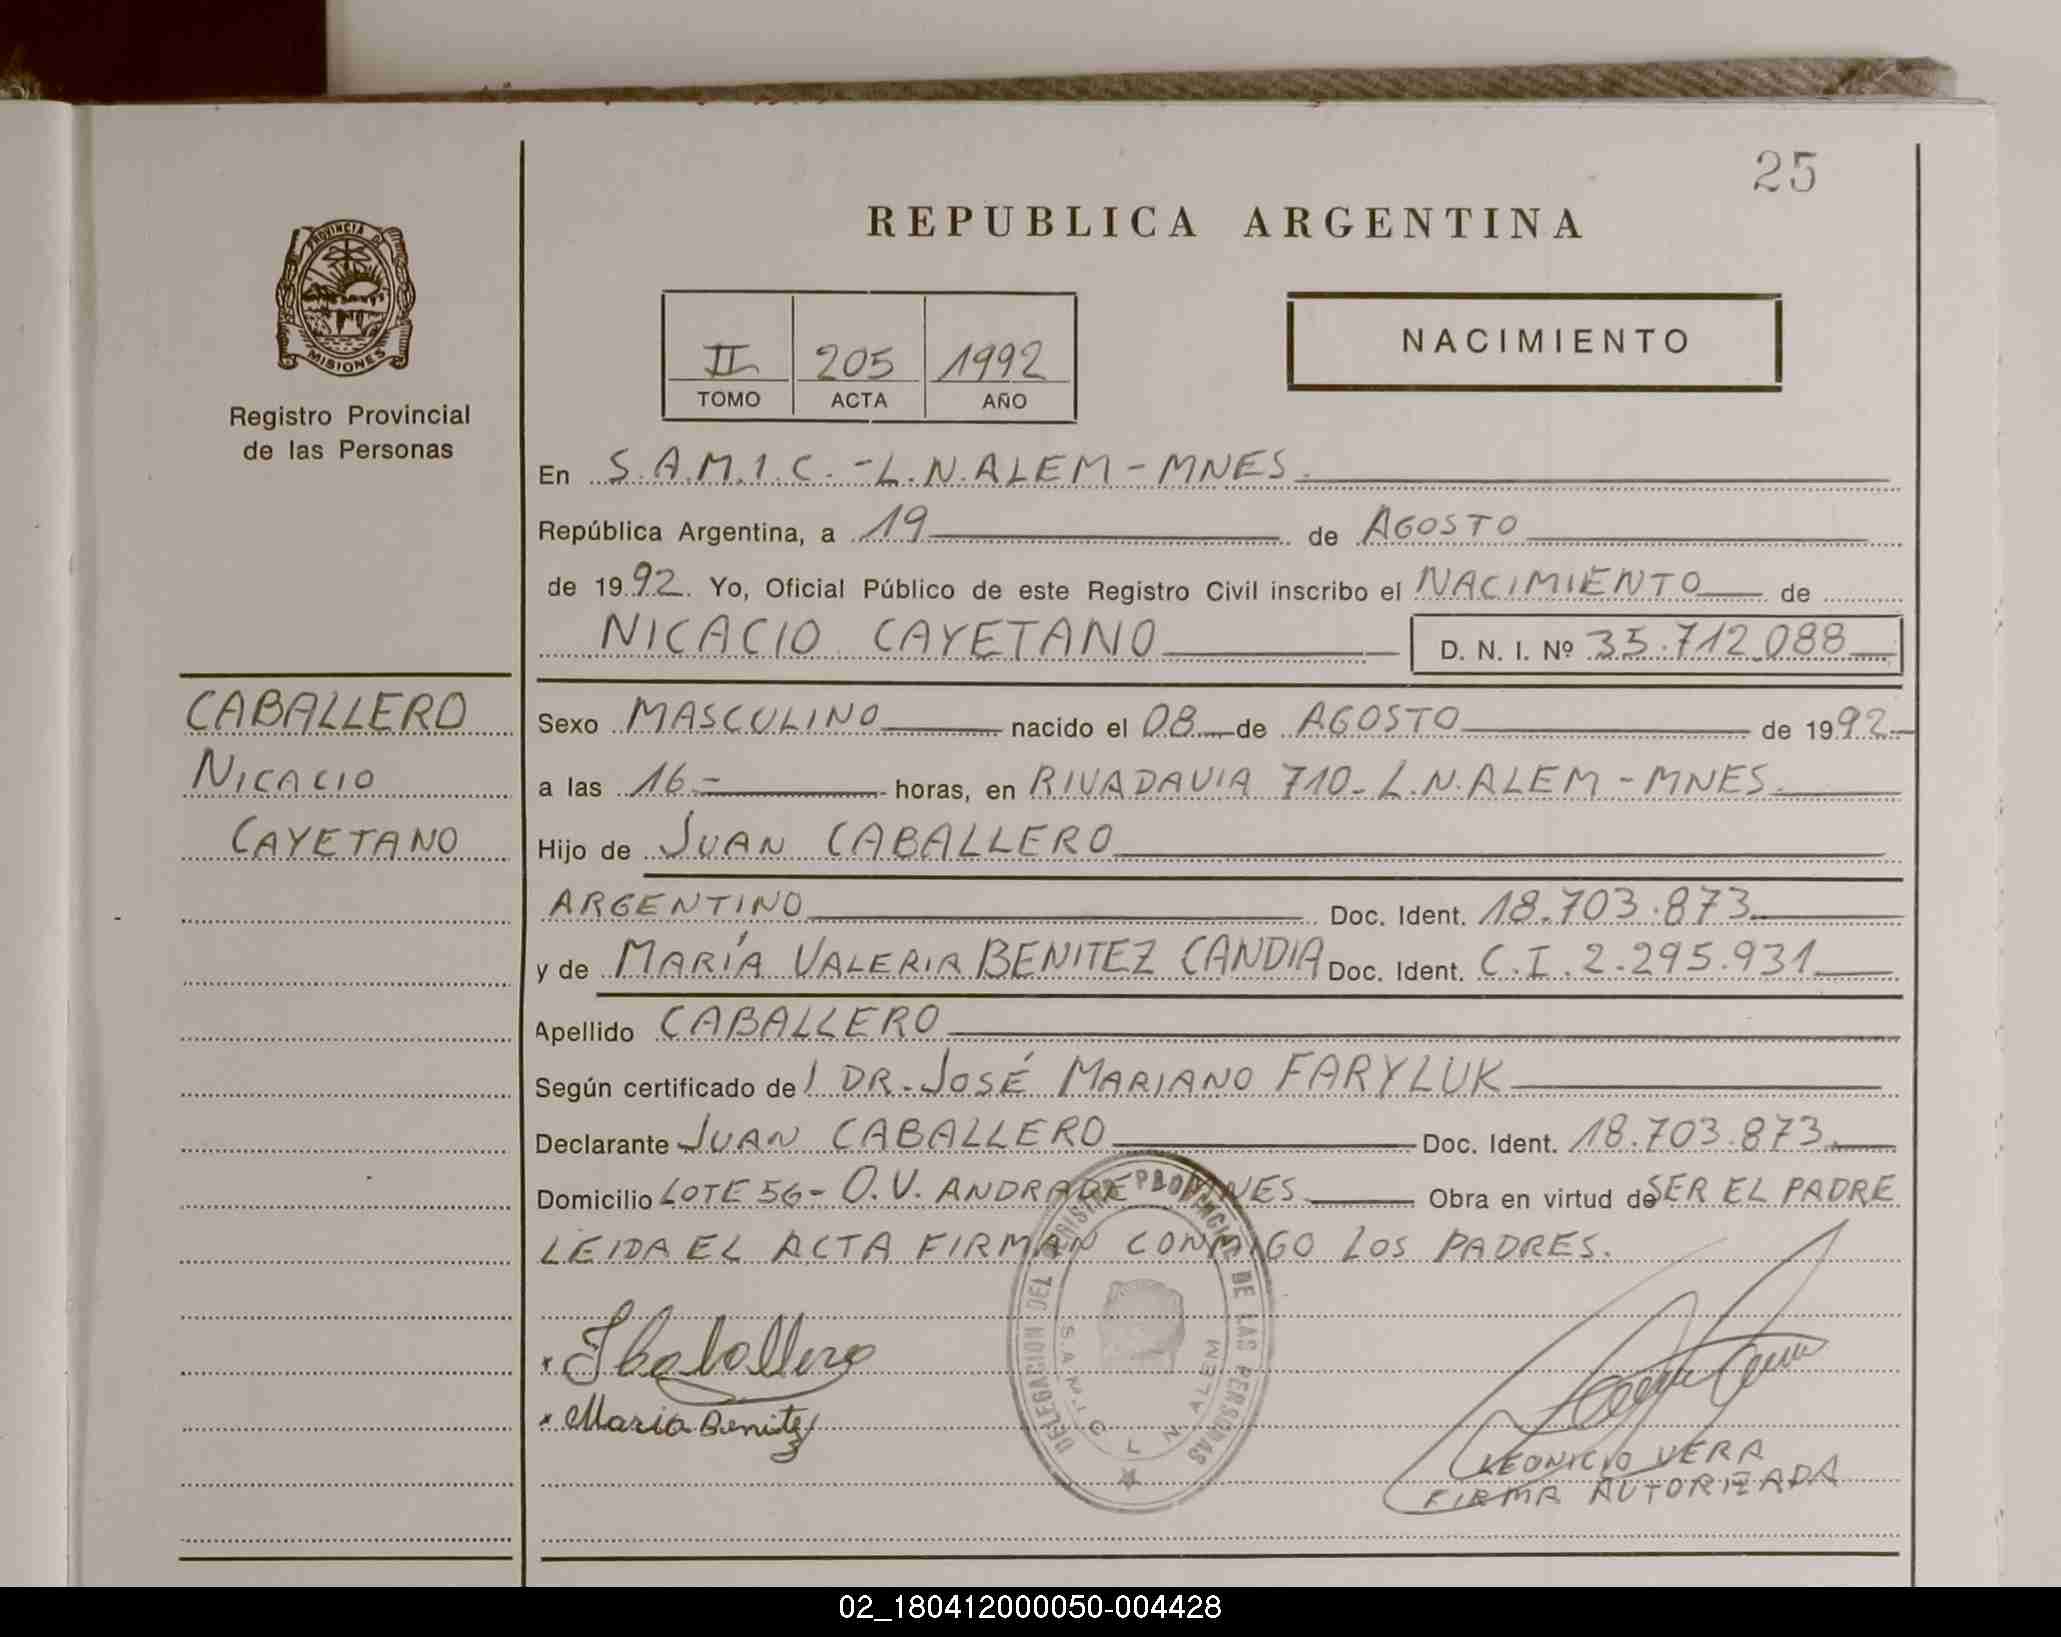 25
REPUBLICA ARGENTINA
PROVINCIA DE
MISIONES
Registro Provincial
de las Personas
II 205 1992
TOMO ACTA AÑO
NACIMIENTO
En S.A.M.I.C. - L.N.ALEM - MNES.
República Argentina, a 19 de AGOSTO
de 1992. Yo, Oficial Público de este Registro Civil inscribo el NACIMIENTO de
NICACIO CAYETANO D. N. I. Nº 35.712.088
CABALLERO
NICACIO
CAYETANO
Sexo MASCULINO nacido el 08 de AGOSTO de 1992
a las 16.- horas, en RIVADAVIA 710 - L.N.ALEM - MNES.
Hijo de JUAN CABALLERO
ARGENTINO Doc. Ident. 18.703.873
y de MARÍA VALERIA BENITEZ CANDIA Doc. Ident. C.I. 2.295.931
Apellido CABALLERO
Según certificado del DR. JOSÉ MARIANO FARYLUK
Declarante JUAN CABALLERO Doc. Ident. 18.703.873
Domicilio LOTE 56 - O.V. ANDRADE - MNES Obra en virtud de SER EL PADRE
LEIDA EL ACTA FIRMAN CONMIGO LOS PADRES.
DELEGACION DEL REGISTRO PROVINCIAL DE LAS PERSONAS
S.A.M.I.C. L N ALEM
x J Caballero
x Maria Benitez
LEONICIO VERA
FIRMA AUTORIZADA
02_180412000050-004428